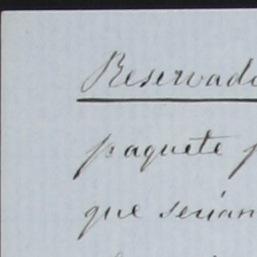 Reservado
paquete p
que serian